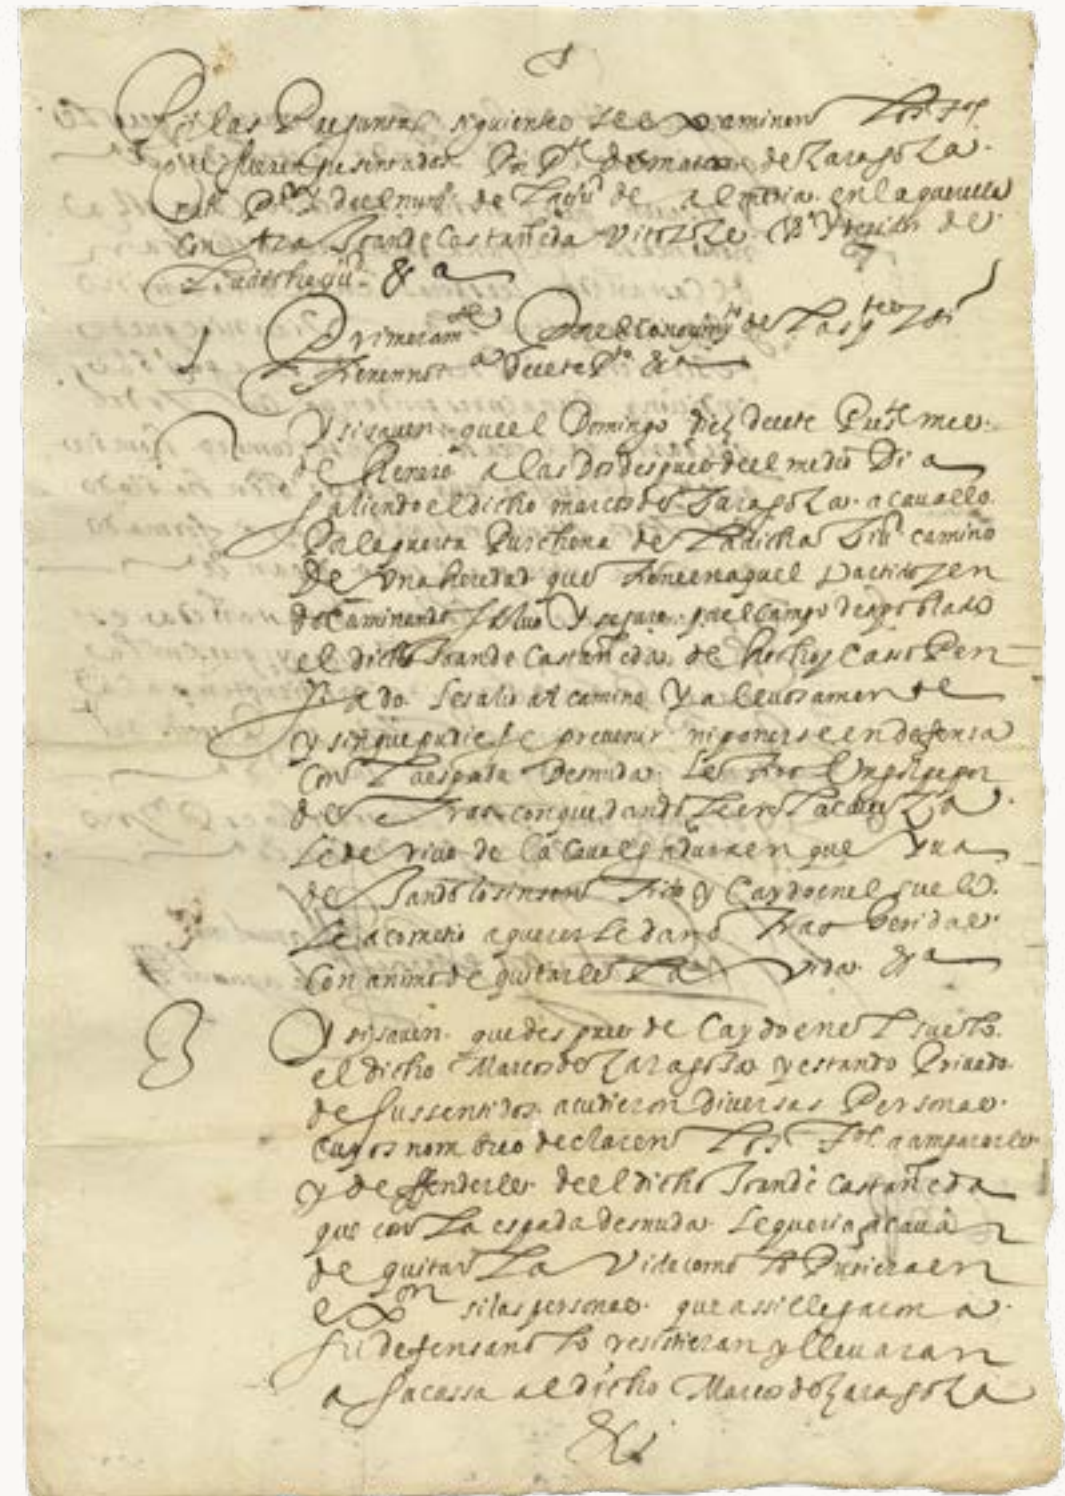 Por las Preguntas siguientes se examinen Los tos
que fueren presentados Por Pte de marcos de Zaragoza
del numo de la ciud de almeria en la querella
contra Joan de Castañeda Vezo Y rexidor de
la dicha ciud &a
1 Primeramte Por el conosimyto de Las ptes Y si
tienen nota de este Pto &a
Y si saven que el Domingo diez de este Preste mes
de Henero a las dos despues de el medio Dia
saliendo el dicho marcos de Zaragoza a cavallo
Por la puerta Purchena de La dicha Ciud camino
de Una heredad que tiene en aquel Partido Yen
do caminando solo Y seguro por el campo despoblado
el dicho Joan de Castañeda de hecho y caso Pen
sado le salio al camino Y alevosamente
y sin que pudiese prevenir ni ponerse en defensa
con La espada desnuda le tiro Un golpe por
detras con que dandole en La caveza
Le derivo de la cavalgadura en que Yva
dejandolo sin sentido y Caydo en el suelo
Le acometio a querer le dar otras heridas
Con animo de quitarle La vida &a
3 Y si saven que despues de Caydo en el suelo
el dicho Marcos de Zaragoza y estando Privado
de sus sentidos acudieron diversas Personas
cuyos nombres declaren Los tos a ampararle
y deffenderle de el dicho Joan de Castañeda
que con La espada desnuda le queria acavar
de quitar La Vida como lo Pusiera en
exon si las personas que assi llegaron a
su defensa no lo resistieran y llevaran
a su cassa al dicho Marcos de Zaragoza
&a